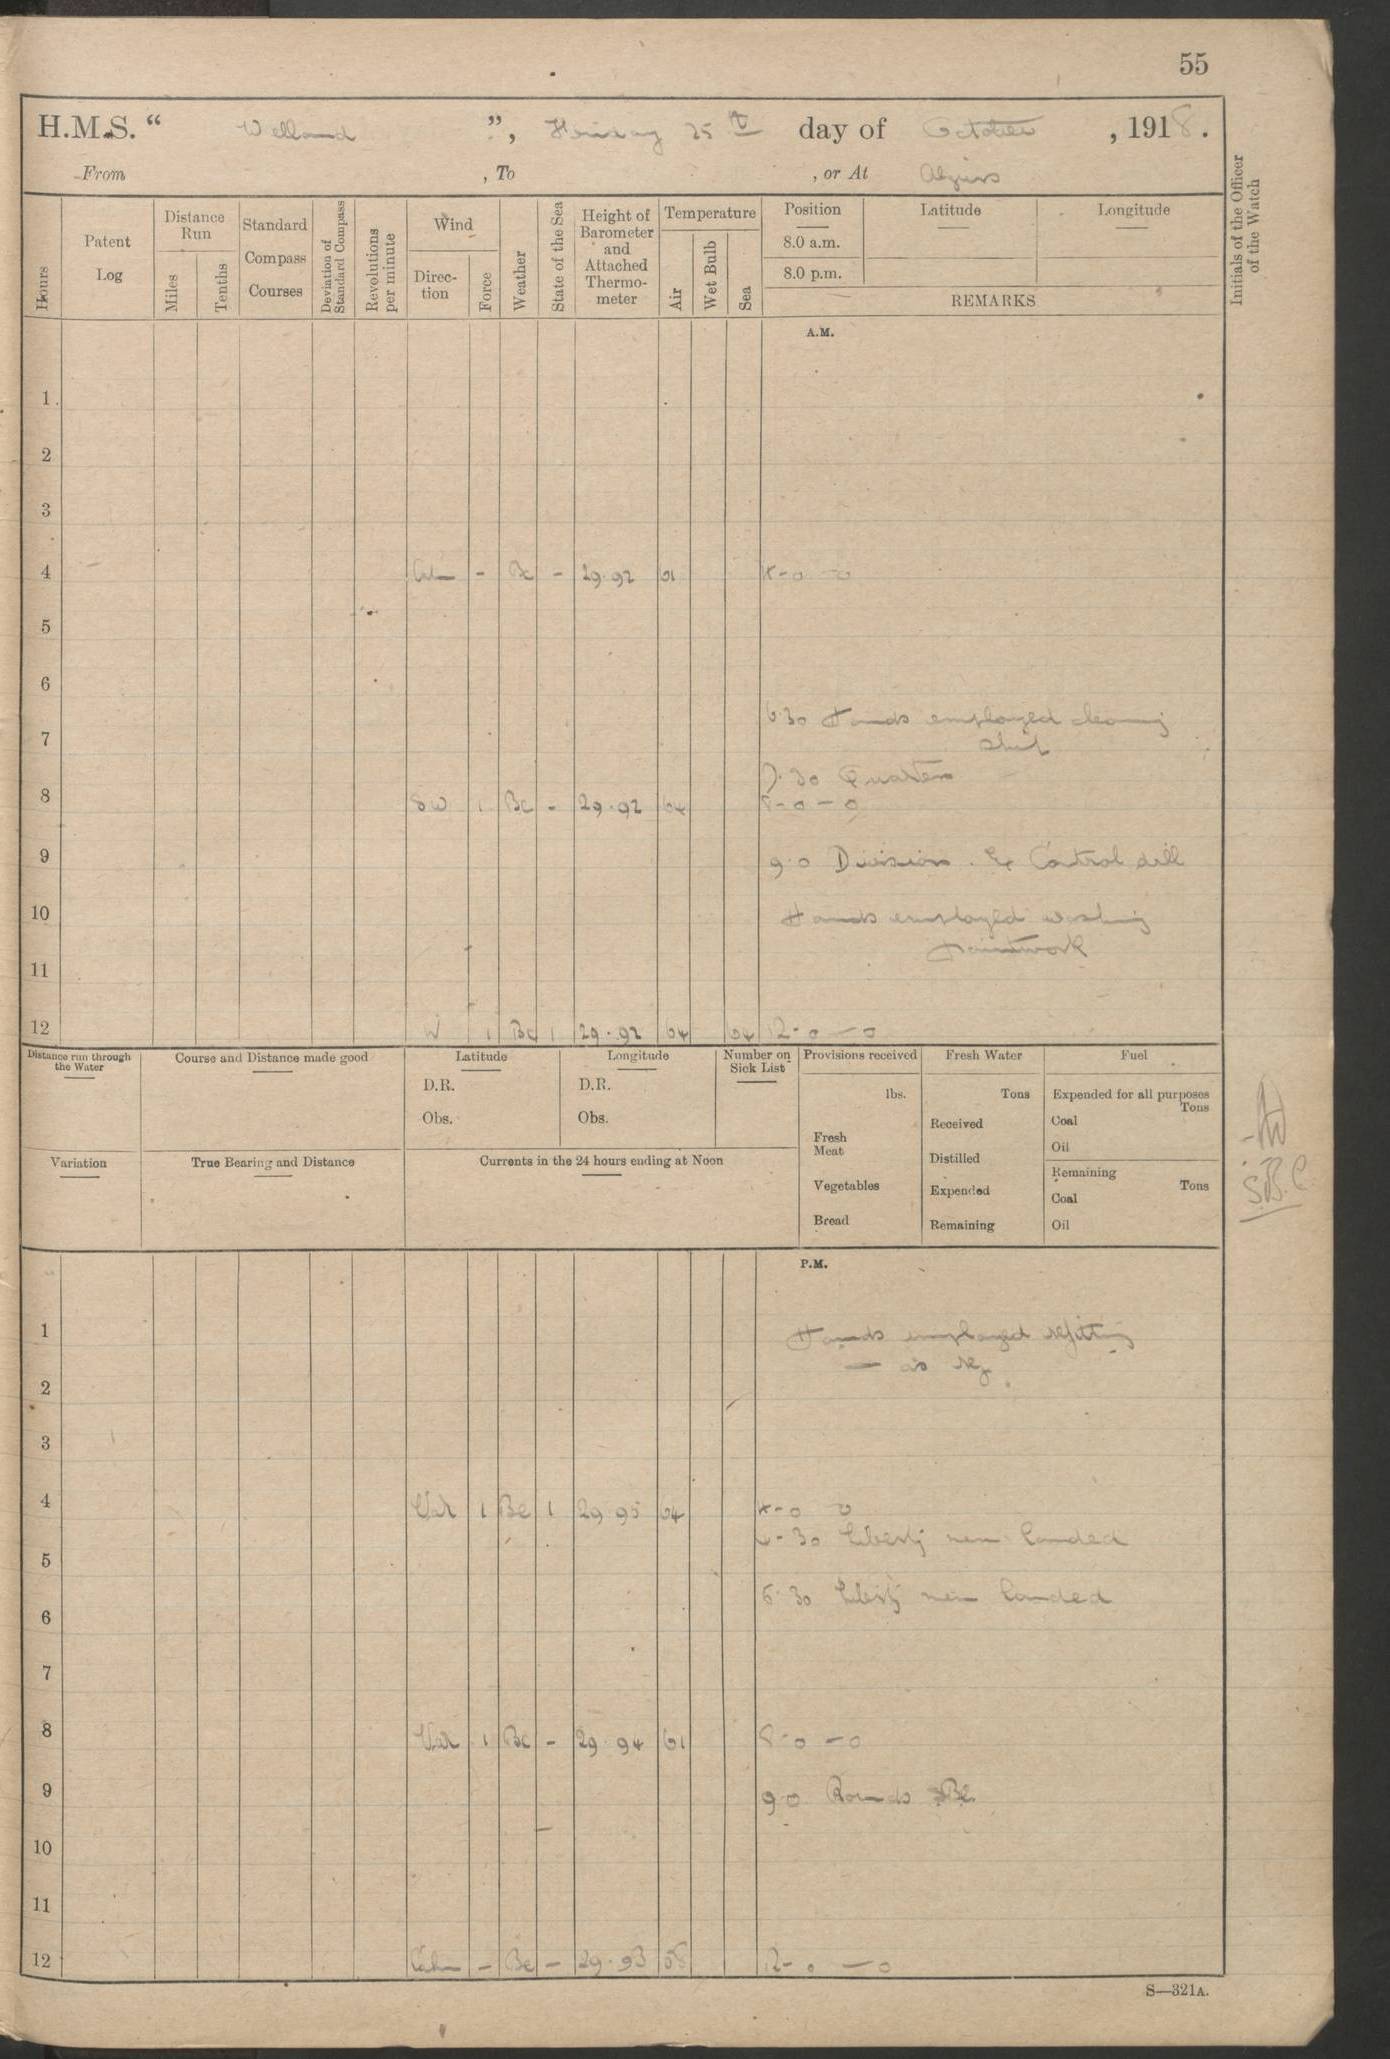 55
H.M.S. “ Welland ”, Friday 25th day of October , 1918.
From , To , or At Algiers
Hours
Patent Log
Distance Run
Miles
Tenths
Standard Compass Courses
Deviation of Standard Compass
Revolutions per minute
Wind
Direc-tion
Force
Weather
State of the Sea
Height of Barometer and Attached Thermo-meter
Temperature
Air
Wet Bulb
Sea
Position
8.0 a.m.
8.0 p.m.
Latitude
Longitude
REMARKS
Initials of the Officer of the Watch
A.M.
1
2
3
4 Calm - Bc - 29.92 61 4-0 - 0
5
6
6.30 Hands employed cleaning
7 ship
7.30 Quarters
8 SW 1 Bc - 29.92 64 8-0 - 0
9 9.0 Divisions. & Control drill
10 Hands employed washing
paintwork
11
12 W 1 Bc 1 29.92 64 64 12-0 - 0
Distance run through the Water
Course and Distance made good
Latitude
D.R.
Obs.
Longitude
D.R.
Obs.
Number on Sick List
Provisions received
lbs.
Fresh Meat
Vegetables
Bread
Fresh Water
Tons
Received
Distilled
Expended
Remaining
Fuel
Expended for all purposes
Tons
Coal
Oil
Remaining
Tons
Coal
Oil
Variation
True Bearing and Distance
Currents in the 24 hours ending at Noon
S.B.C.
P.M.
1 Hands employed refitting
— as req
2
3
4 Var 1 Bc 1 29 95 64 4-0 0
4-30 Liberty men landed
5
6.30 Liberty men landed
6
7
8 Var 1 Bc - 29.94 61 8-0 - 0
9 9 0 Rounds
10
11
12 Calm - Bc - 29.93 58 12-0 - 0
S—321A.